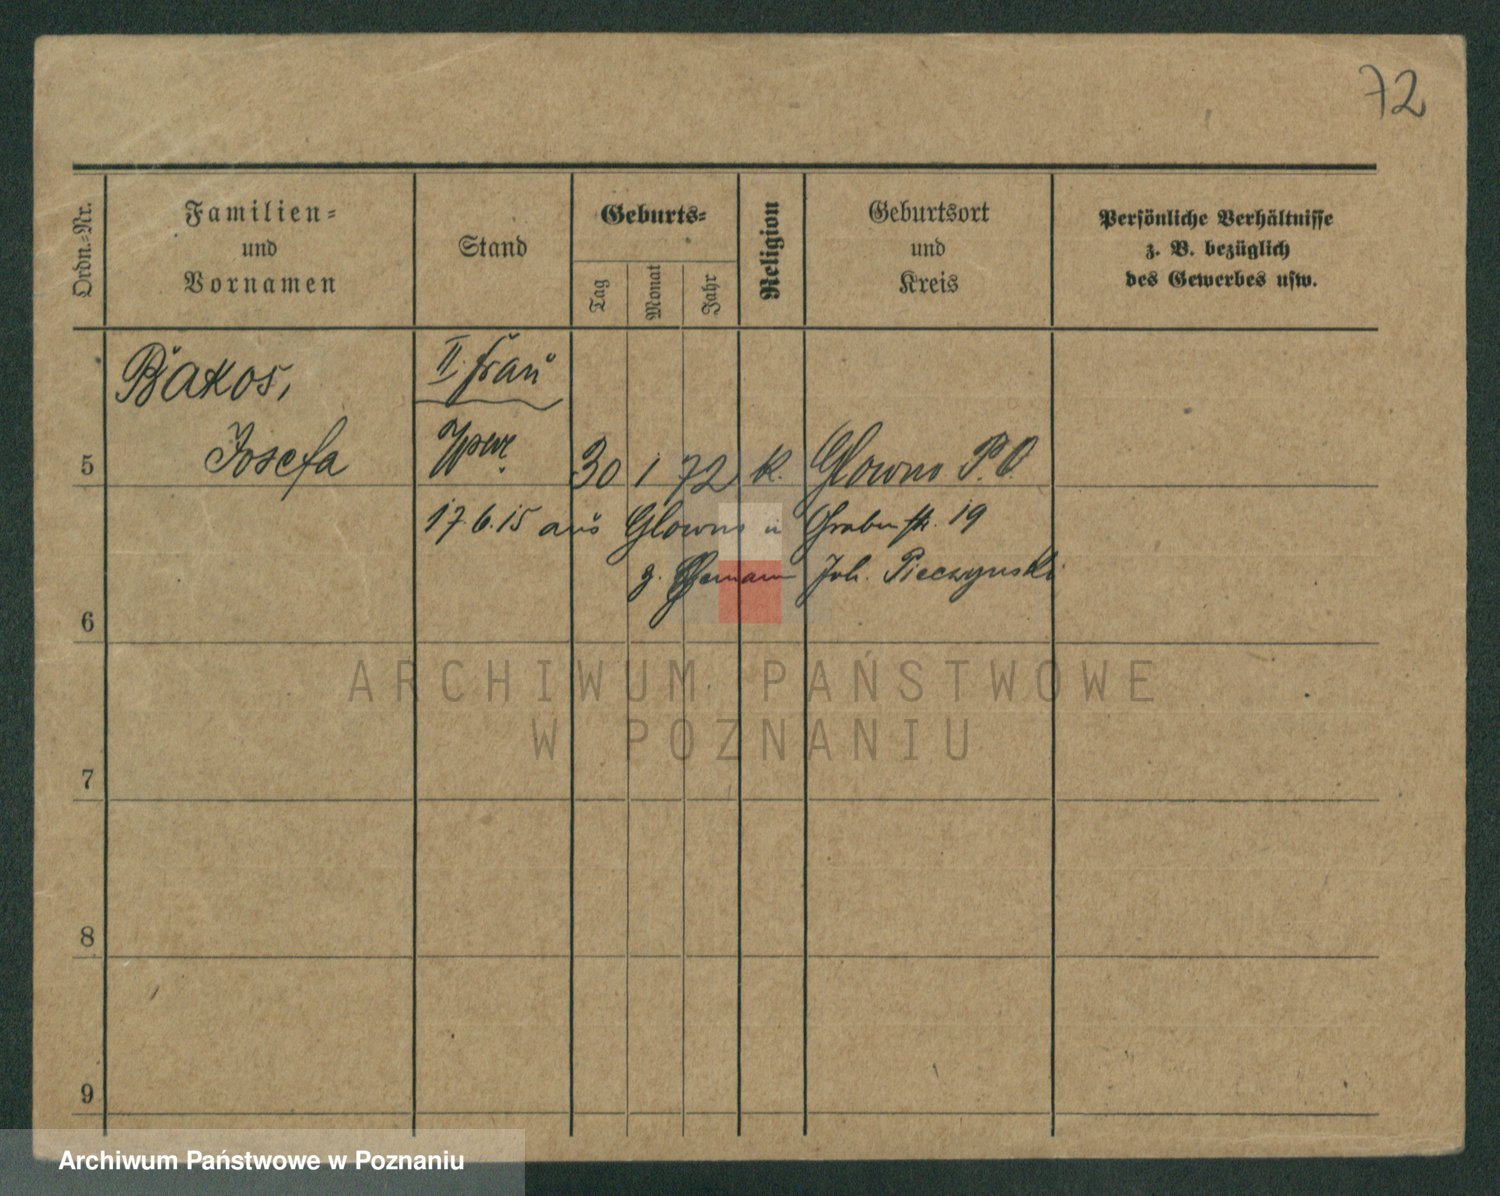 72
Ordn.-Nr.
Familien-
und
Vornamen
Stand
Geburts-
Tag
Monat
Jahr
Religion
Geburtsort
und
Kreis
Persönliche Verhältnisse
z. B. bezüglich
des Gewerbes usw.
Bakos,
II. Frau
5 Josefa 30 1 72 k. Glowno P. O.
17.6.15 aus Glowno n Grabenstr. 19
z. Ehemann Joh. Pieczynski
6
ARCHIWUM PAŃSTWOWE
W POZNANIU
7
8
9
Archiwum Państwowe w Poznaniu